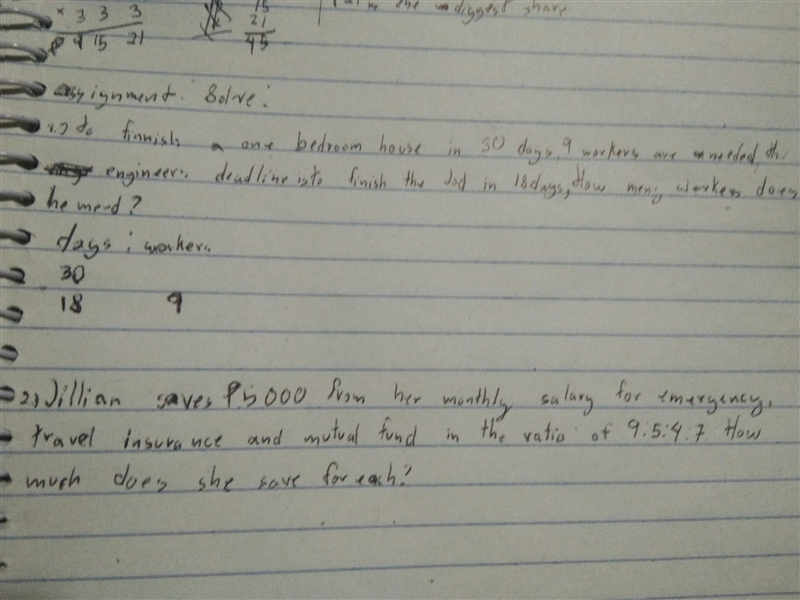 × 3 3 3
9 15 21
15
21
45
the diggest share
assignment: Solve:
1.) To finnish a one bedroom house in 30 days, 9 workers are needed, the
engineers deadline is to finish the Jod in 18 days, How meny workers does
he need?
days : workers
30
18 9
2.) Jillian saves ₱5000 from her monthly salary for emergency,
travel insurance and mutual fund in the ratio of 9:5:4:7 How
much does she save for each?